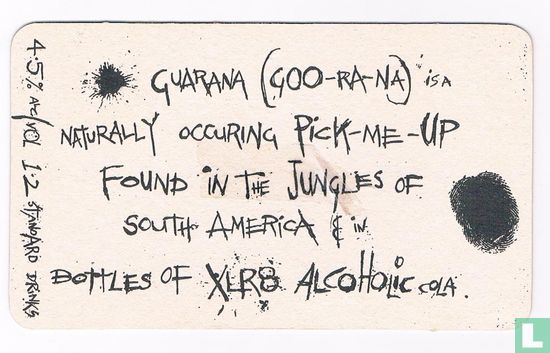 GUARANA (GOO-RA-NA) IS A
NATURALLY OCCURING PICK-ME-UP
FOUND IN THE JUNGLES OF
SOUTH AMERICA & IN
BOTTLES OF XLR8 ALCOHOLIC COLA.
4.5% ALC/VOL 1.2 STANDARD DRINKS
LastDodo